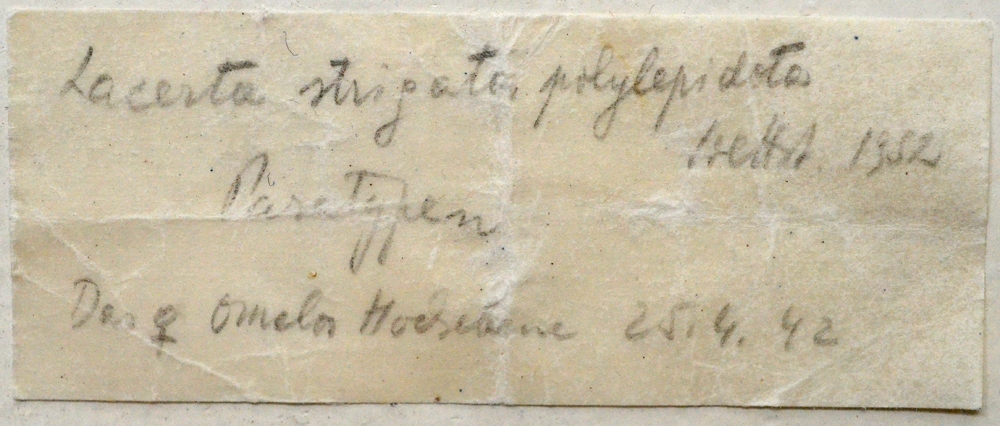 Lacerta strigata polylepidota
Wettst. 1952
Paratypen
Das ♀ Omalos Hochebene 25.4.42